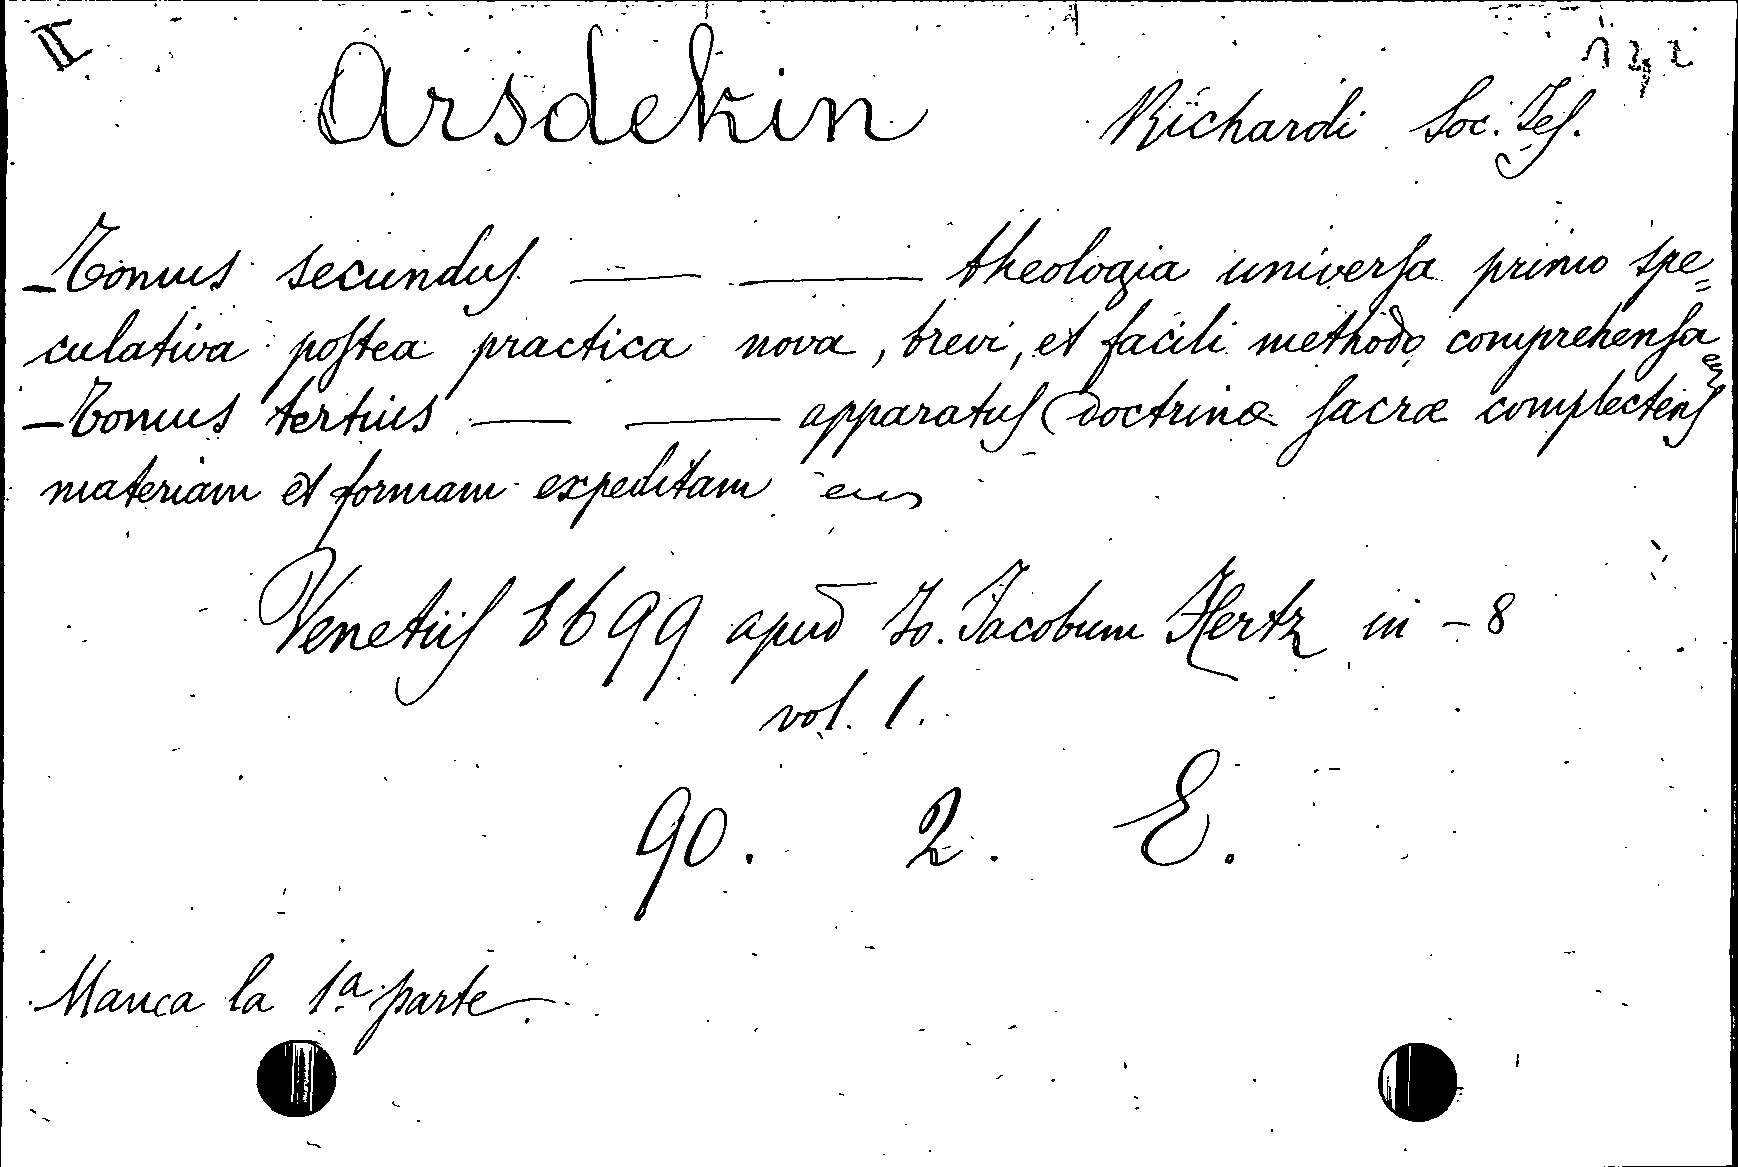 II
Arsdekin Richardi Soc. Jeſ.
– Tomus secunduſ —— —— theologia univerſa primo spe=
culativa poſtea practica nova, brevi, et facili methodo comprehenſa
– Tomus tertius —— —— apparatuſ doctrinæ ſacræ complectenſ
materiam et formam expeditam
Venetiiſ 1699 apud Jo. Jacobum Hertz in – 8
vol. 1.
90. 2. E.
Manca la 1ª parte.